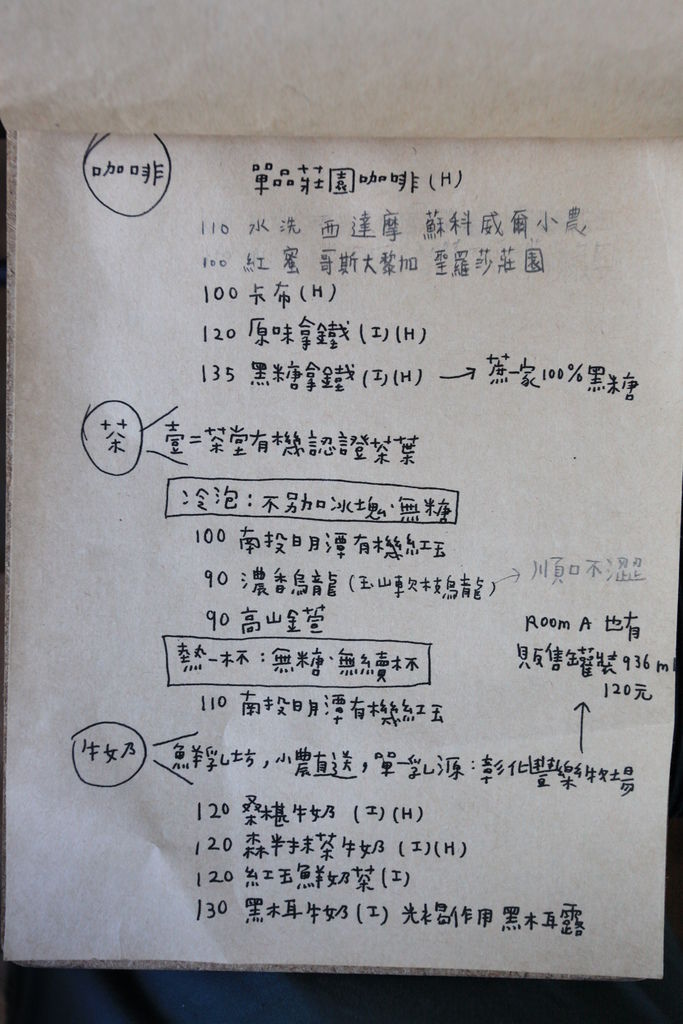 咖啡
單品莊園咖啡(H)
110 水洗 西達摩 蘇科威爾小農
100 紅蜜 哥斯大黎加 聖羅莎莊園
100 卡布(H)
120 原味拿鐵(I)(H)
135 黑糖拿鐵(I)(H) → 蔗一家100%黑糖
茶 壹=茶堂有機認證茶葉
冷泡:不另加冰塊·無糖
100 南投日月潭有機紅玉
90 濃香烏龍(玉山軟枝烏龍) → 順口不澀
90 高山金萱
熱一杯:無糖·無續杯
110 南投日月潭有機紅玉
ROOM A 也有
販售罐裝936ml
120元
牛奶 鮮乳坊,小農直送,單一乳源:彰化豐樂牧場
120 桑椹牛奶 (I)(H)
120 森半抹茶牛奶 (I)(H)
120 紅玉鮮奶茶(I)
130 黑木耳牛奶(I) 光褐作用 黑木耳露